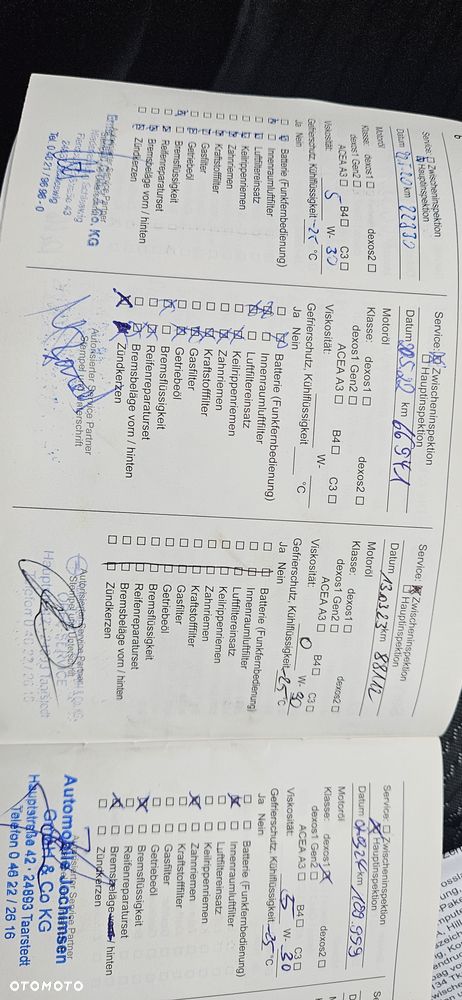 6
Service: Zwischeninspektion
Hauptinspektion
Datum km 22830
Motoröl
Klasse: dexos1 dexos2
dexos1 Gen2
ACEA A3 B4 C3
Viskosität: 5 W- 30
Gefrierschutz, Kühlflüssigkeit -25 °C
Ja Nein
Batterie (Funkfernbedienung)
Innenraumluftfilter
Luftfiltereinsatz
Keilrippenriemen
Zahnriemen
Kraftstofffilter
Gasfilter
Getriebeöl
Bremsflüssigkeit
Reifenreparaturset
Bremsbeläge vorn / hinten
Zündkerzen
Service: Zwischeninspektion
Hauptinspektion
Datum km 66941
Motoröl
Klasse: dexos1 dexos2
dexos1 Gen2
ACEA A3 B4 C3
Viskosität: W-
Gefrierschutz, Kühlflüssigkeit °C
Ja Nein
Batterie (Funkfernbedienung)
Innenraumluftfilter
Luftfiltereinsatz
Keilrippenriemen
Zahnriemen
Kraftstofffilter
Gasfilter
Getriebeöl
Bremsflüssigkeit
Reifenreparaturset
Bremsbeläge vorn / hinten
Zündkerzen
Autorisierter Service Partner
Stempel / Unterschrift
Service: Zwischeninspektion
Hauptinspektion
Datum 13.03.23 km 88112
Motoröl
Klasse: dexos1 dexos2
dexos1 Gen2
ACEA A3 B4 C3
Viskosität: 0 W- 30
Gefrierschutz, Kühlflüssigkeit -25 °C
Ja Nein
Batterie (Funkfernbedienung)
Innenraumluftfilter
Luftfiltereinsatz
Keilrippenriemen
Zahnriemen
Kraftstofffilter
Gasfilter
Getriebeöl
Bremsflüssigkeit
Reifenreparaturset
Bremsbeläge vorn / hinten
Zündkerzen
Autorisierter Service Partner
Service: Zwischeninspektion
Hauptinspektion
Datum km 109959
Motoröl
Klasse: dexos1 dexos2
dexos1 Gen2
ACEA A3 B4 C3
Viskosität: 5 W- 30
Gefrierschutz, Kühlflüssigkeit °C
Ja Nein
Batterie (Funkfernbedienung)
Innenraumluftfilter
Luftfiltereinsatz
Keilrippenriemen
Zahnriemen
Kraftstofffilter
Gasfilter
Getriebeöl
Bremsflüssigkeit
Reifenreparaturset
Bremsbeläge vorn / hinten
Zündkerzen
Automobile Jochimsen
GmbH & Co KG
Hauptstraße 42 · 24893 Taarstedt
Telefon 0 46 22 / 26 16
OTOMOTO